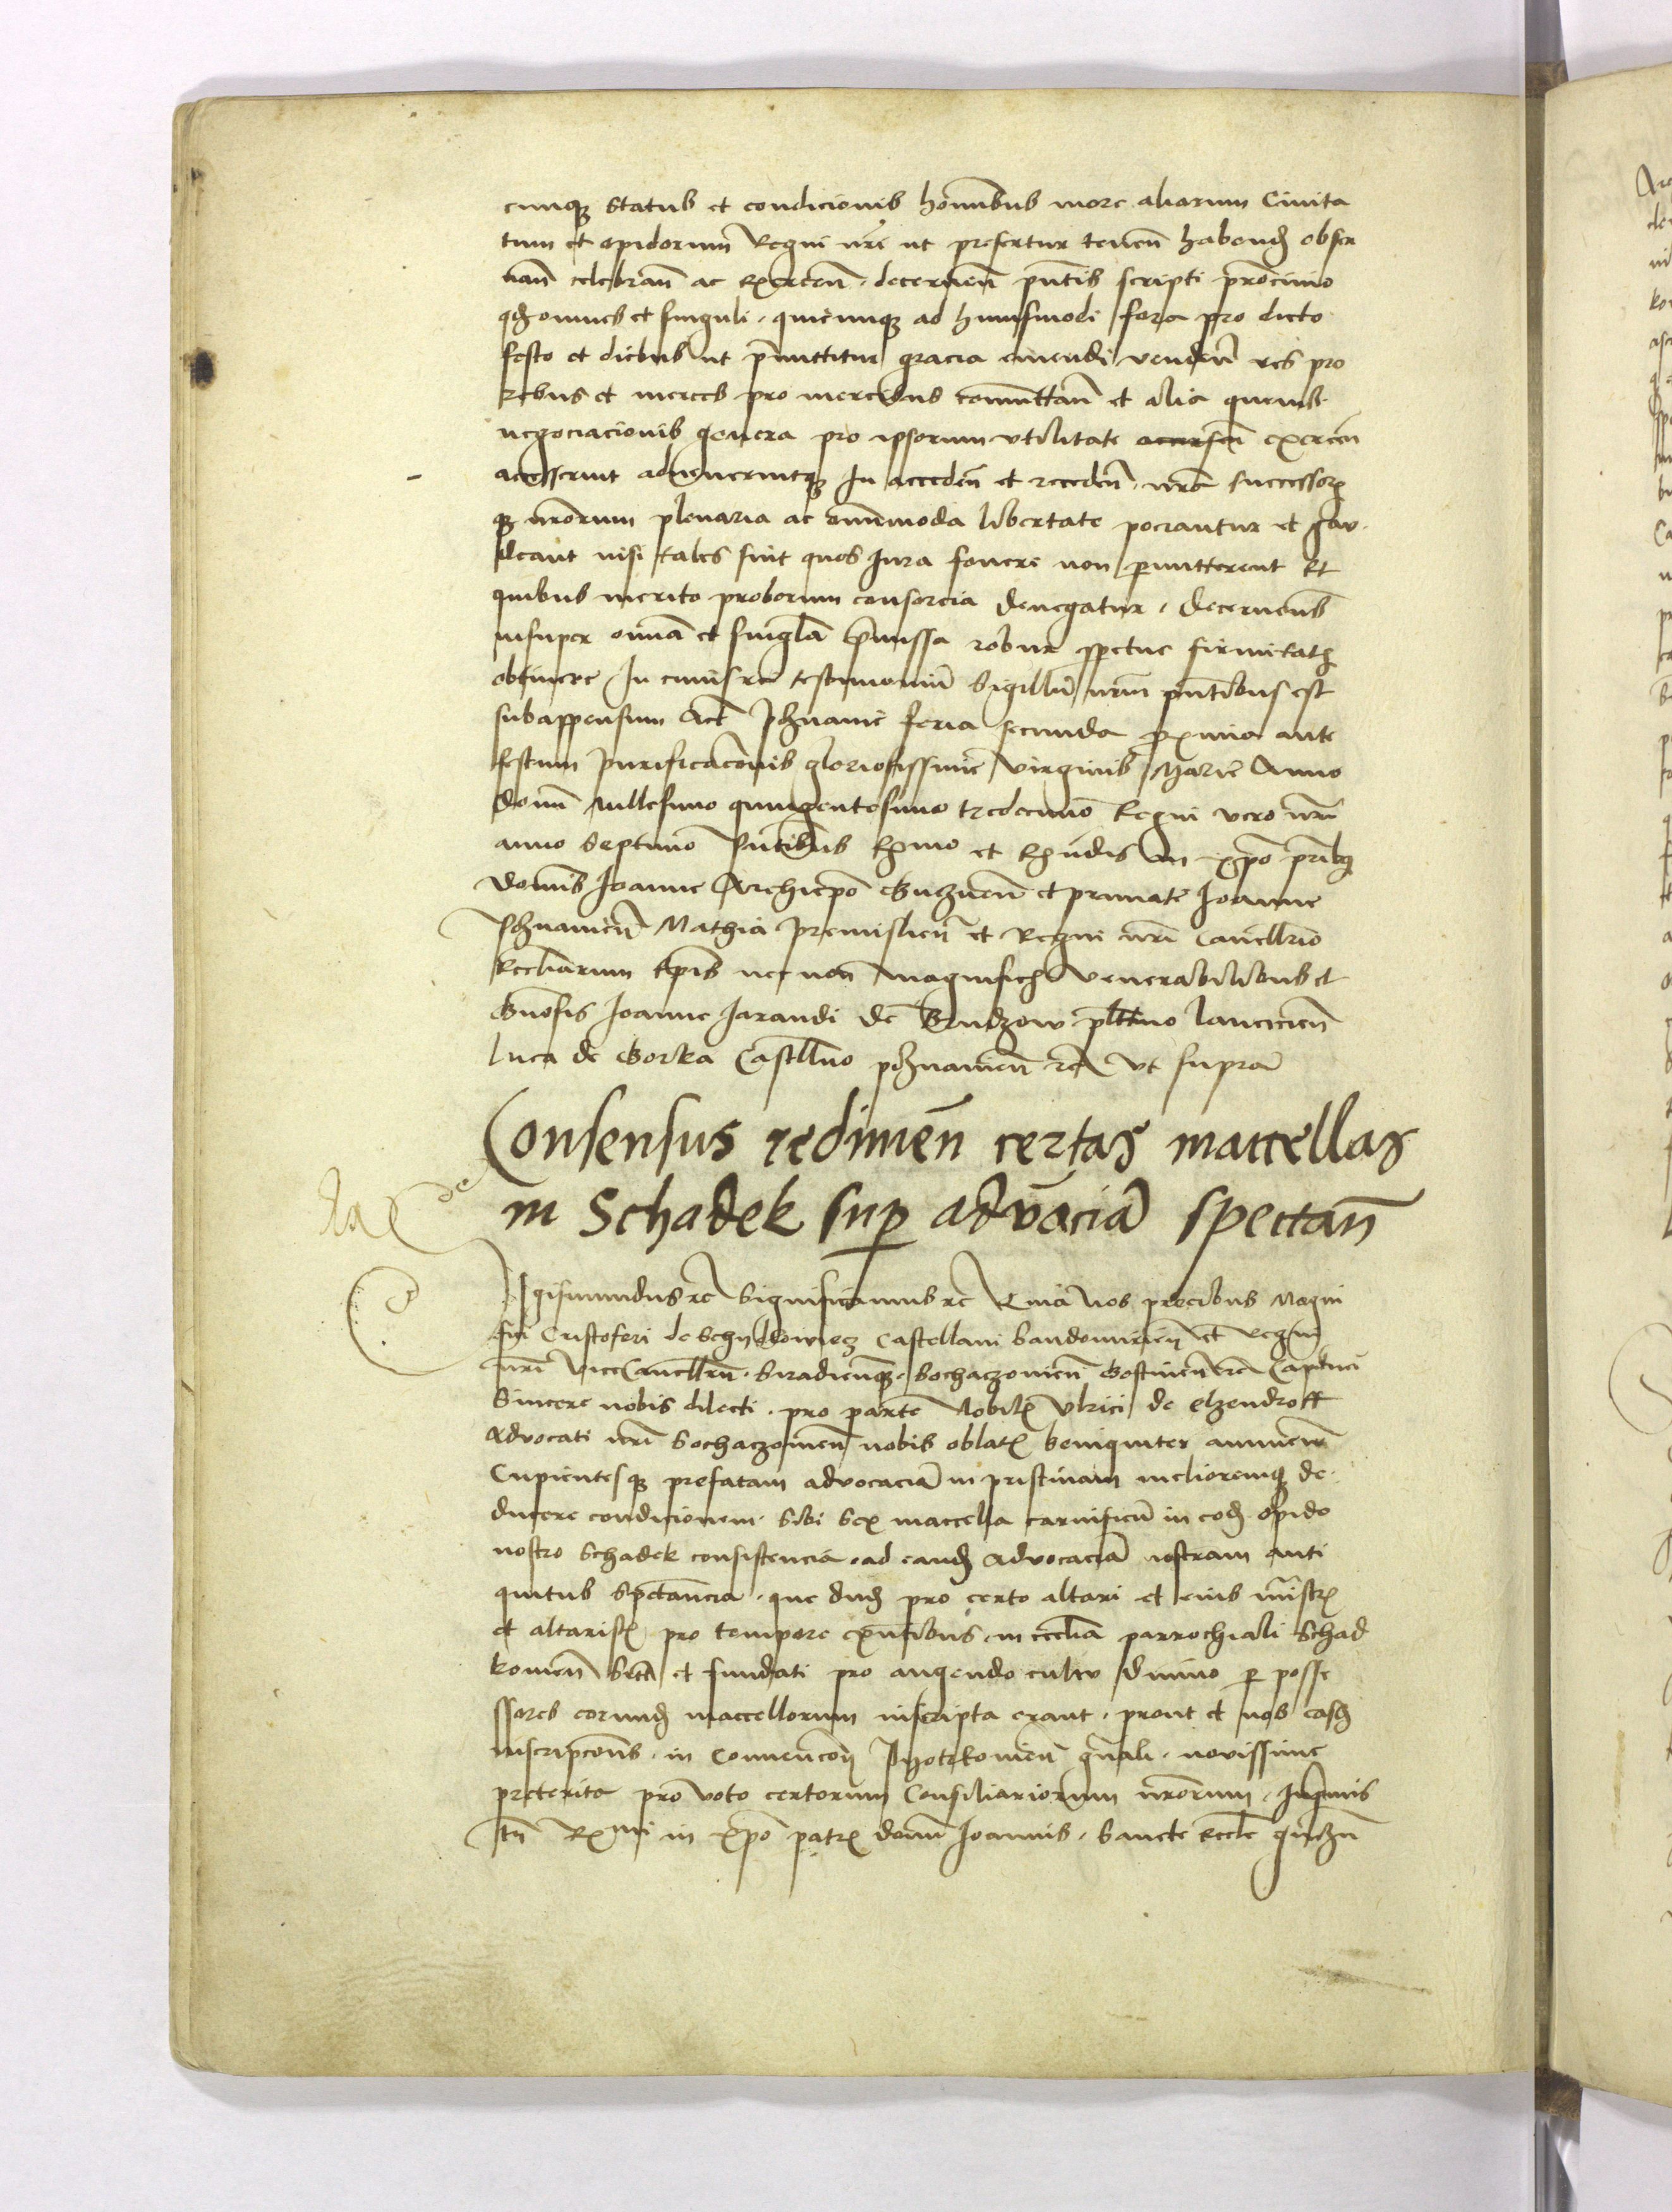 cunq status et condicionis hominibus more aliarum Civita
tum et opidorum Regni nri ut prefertur tenen habend obser
uan celebran ac Exercen decernen pntis scripti
qd omnes et singuli quicunq ad huiusmodi fora pro dicto
festo et diebus ut premittitur gracia emendi venden res pro
rebus et merces pro mercibus comuttan et alia
negociacionis genera pro ipsorum utilitate exercen
accesserint aduenerintq In acceden et receden nra successor
q nrorum plenaria ac omnimoda libertate pociantur et gau
deant nisi tales sint quos Jura fouere non permitterent Et
quibus merito proborum consorcia denegatur Decernens
insuper omia et singla pmissa robur ppetue firmitatis
obtinere In cuius rei testimonium Sigillu nrm pntibus est
subappensum Act Poznanie feria secunda proxima ante
festum Purificacionis gloriosissime virginis Marie Anno
domi Millesimo quingentesimo tredecimo Regni vero nri
anno Septimo pntibus Rmo et Rndis in xpo prib
domis Joanne Archiepo Gnznen et primate Joanne
Poznanien Mathia Premislien et Regni nri Cancellrio
Eccliarum Epis nec non magnificis Venerabilibus et
Gnosis Joanne Jarandi de Brudzow plttno lancicien
luca de Gorka Castellno poznanien rc ut supra
Consensus redimen certas maccellas
in Schadek sup advocacia spectan
Sigismundus rc Significamus rc Quia nos precibus Magni
fici Cristoferi de Schydlowiecz Castellani Sandomirien et regni
nri ViceCancellrii Siradienq Sochaczouien Gostinen rc Capitanei
Sincere nobis dilecti pro parte Nobilis Ulrici de elzendroff
Advocati nri Sochaczouien nobis oblatis benigniter annuen
Cupientesq prefatam advocacia in pristinam melioremq de
ducere condicionem Sibi Sex maccella carnificu in eod opido
nostro Schadek consistencia ad eand advocacia nostram anti
quitus Spectancia que dud pro certo altari et eius
et altaristis pro tempore existibus in ecclia parrochiali Schad
kouien et fundati pro augendo cultu diuino p posse
ssores eorund maccellorum inscripta erant prout et nos easd
inscripcones in Conuencon Piotrkouien gnali novissime
preterita pro voto certorum Consiliariorum nrorum Inprimis
tn Rmi in xpo patris domi Joannis Sancte Eccle gnezn